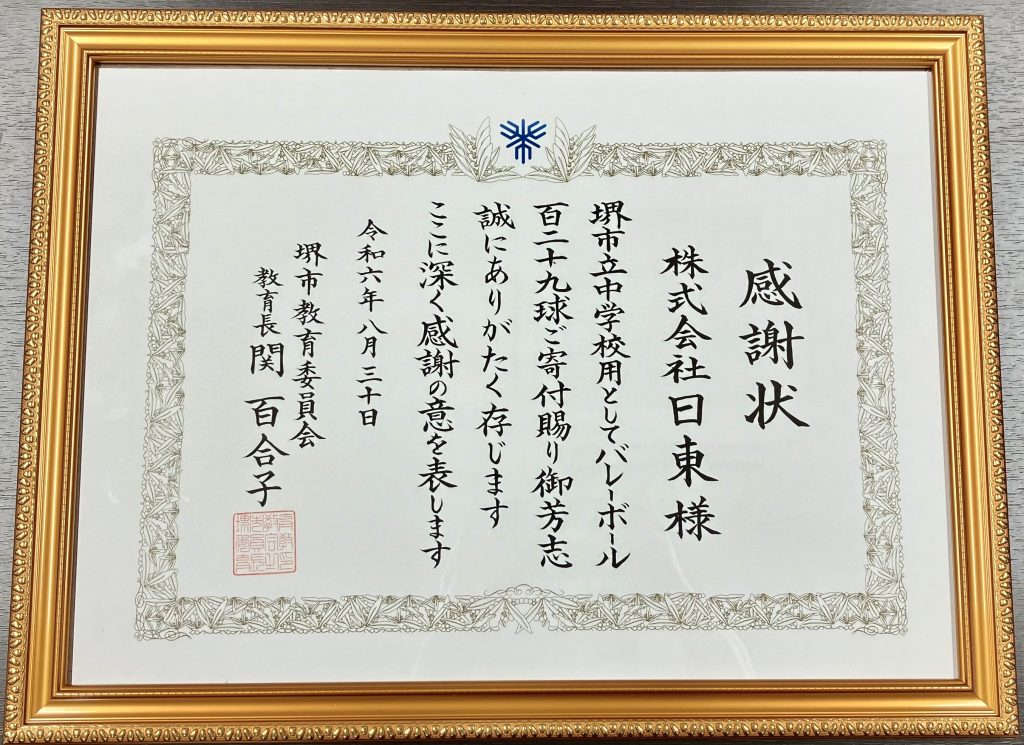 感謝状
株式会社日東様
堺市立中学校用としてバレーボール
百二十九球ご寄付賜り御芳志
誠にありがたく存じます
ここに深く感謝の意を表します
令和六年八月三十日
堺市教育委員会
教育長 関 百合子